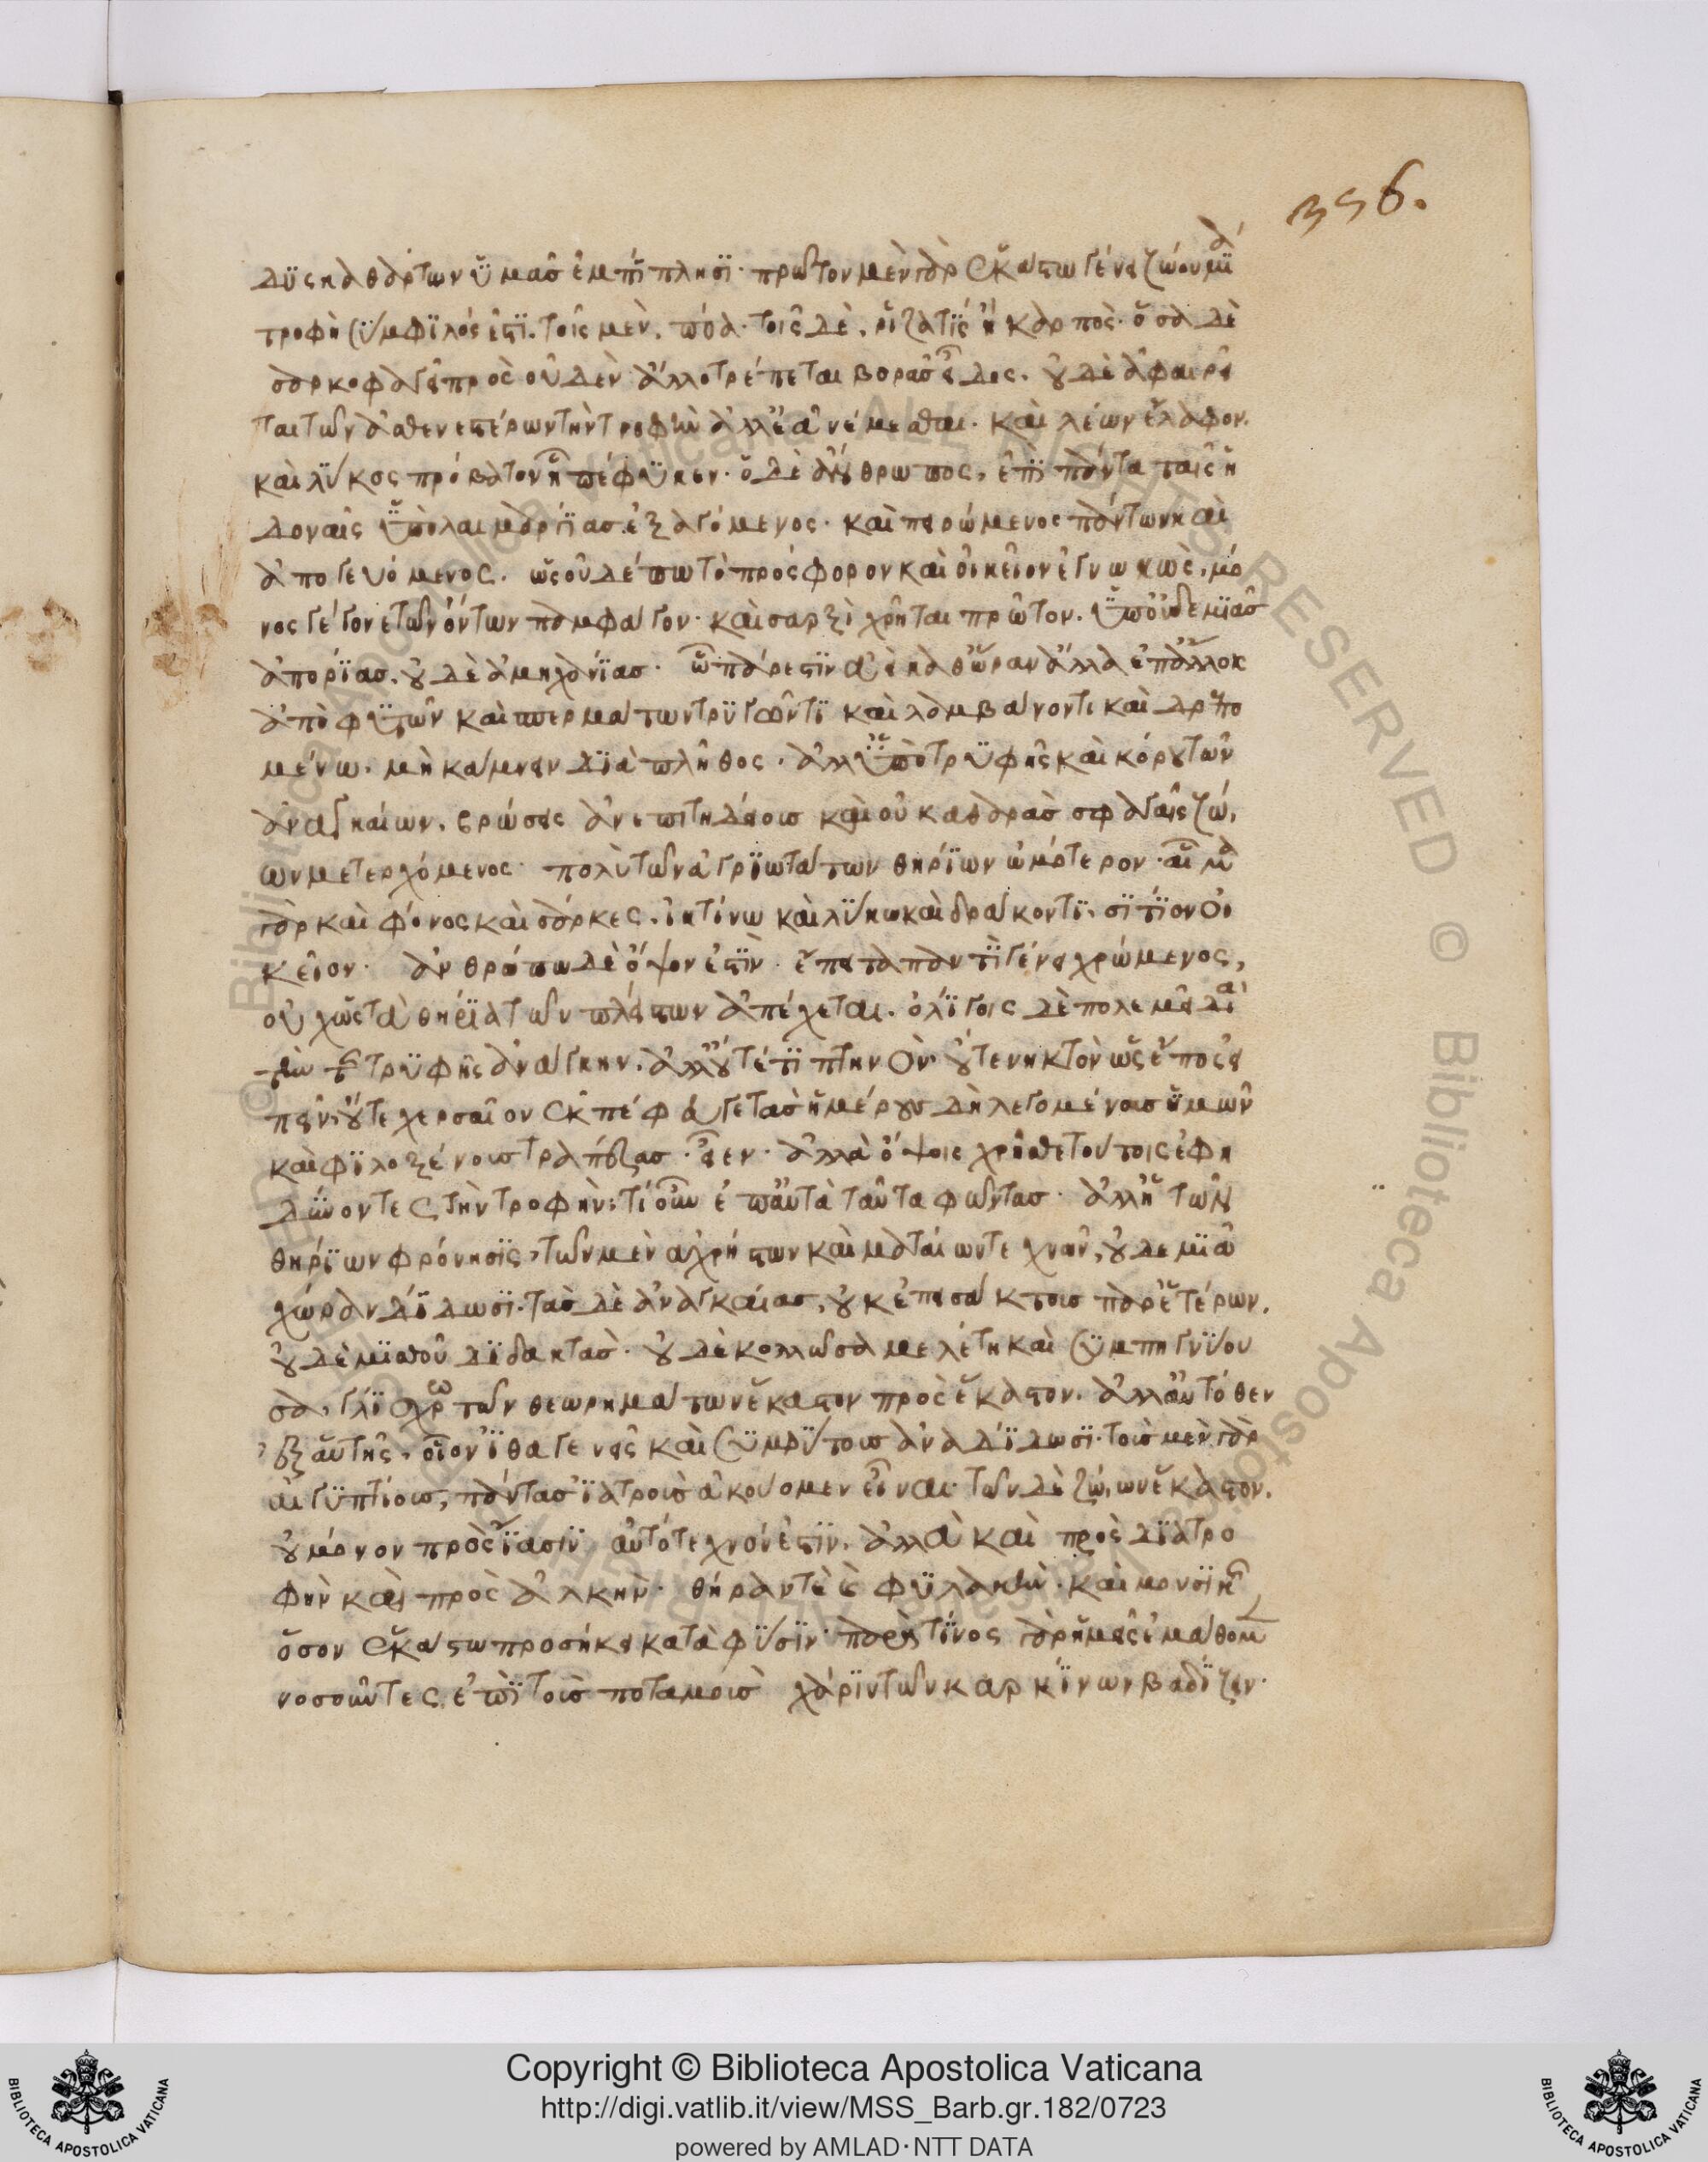 356.
δυς καθάρτων ὑμᾶς ἐμπίπλησι· πρῶτον μὲν γὰρ ἑκάστω γένει ζώου μία
τροφὴ σύμφυλός ἐστι. τοῖς μὲν, πόα· τοῖς δὲ, ῥίζα τίς ἢ καρπὸς· ὅσα δὲ
σαρκοφαγεῖ πρὸς οὐδὲν ἄλλο τρέπεται βορᾶς εἶδος. οὐδὲ ἀφαιρεῖ
ται τῶν ἀσθενεστέρων τὴν τροφὴν ἀλλ' ἐᾶ νέμεσθαι. καὶ λέων ἔλαφον.
καὶ λύκος πρόβατον ᾗ πέφυκεν· ὁ δὲ ἄνθρωπος, ἐπὶ πάντα ταῖς ἡ
δοναῖς ὑπὸ λαιμαργίας ἐξαγόμενος· καὶ πειρώμενος πάντων καὶ
ἀπογευόμενος. ὡς οὐδέπω τὸ πρόσφορον καὶ οἰκεῖον ἐγνωκὼς, μό
νος γέγονε τῶν ὄντων παμφάγον· καὶ σαρξὶ χρῆται πρῶτον. ὑπ' οὐδεμιᾶς
ἀπορίας. οὐδὲ ἀμηχανίας· ᾧ πάρεστιν ἀεὶ καθ' ὥραν ἄλλα ἐπ' ἄλλοις
ἀπὸ φυτῶν καὶ σπερμάτων τρυγῶντι καὶ λαμβάνοντι καὶ δρεπο
μένω. μὴ κάμνειν διὰ πλῆθος· ἀλλ' ὑπὸ τρυφῆς καὶ κόρου τῶν
ἀναγκαίων. βρώσεις ἀνεπιτηδείους καὶ οὐ καθαρὰς σφαγαῖς ζώ,
ων μετερχόμενος· πολὺ τῶν ἀγριωτάτων θηρίων ὠμότερον· αἷμα
γὰρ καὶ φόνος καὶ σάρκες. ἰκτίνω καὶ λύκω καὶ δράκοντι. σιτίον οἰ
κεῖον· ἀνθρώπω δὲ ὄψον ἐστὶν· ἔπειτα παντὶ γένει χρώμενος,
οὐχ ὡς τὰ θηρία τῶν πλείστων ἀπέχεται. ὀλίγοις δὲ πολεμεῖ διὰ
τὴν τῆς τρυφῆς ἀνάγκην. ἀλλ' οὔτέ τι πτηνὸν οὔτε νηκτὸν ὡς ἔπος εἰ
πεῖν· οὔτε χερσαῖον ἐκπέφευγε τὰς ἡμέρους δὴ λεγομένας ὑμῶν
καὶ φιλοξένους τραπέζας· εἶεν· ἀλλὰ ὄψοις χρῆσθε τούτοις ἐφη
δύνοντες τὴν τροφήν· τί οὖν ἐπ' αὐτὰ ταῦτα φωντας· ἀλλ' ἡ τῶν
θηρίων φρόνησις, τῶν μὲν ἀχρήστων καὶ ματαίων τεχνῶν, οὐδεμιᾶ
χώραν δίδωσι. τὰς δὲ ἀναγκαίας, οὐκ ἐπεισάκτους παρ' ἑτέρων.
οὐδὲ μισθοῦ διδακτὰς· οὐδὲ κολλῶσα μελέτη καὶ συμπηγνύου
σα. γλίσχρως τῶν θεωρημάτων ἕκαστον πρὸς ἕκαστον. ἀλλ' αὐτόθεν
ἐξ αὑτῆς. οἷον ἰθαγενεῖς καὶ συμφύτους ἀναδίδωσι. τοὺς μὲν γὰρ
αἰγυπτίους, πάντας ἰατροὺς ἀκούομεν εἶναι· τῶν δὲ ζώ,ων ἕκαστον.
οὐ μόνον πρὸς ἴασιν αὐτότεχνόν ἐστιν. ἀλλὰ καὶ πρὸς διατρο
φὴν καὶ πρὸς ἀλκὴν· θήραν τὲ καὶ φυλακὴν· καὶ μουσικῆς
ὅσον ἑκάστω προσήκει κατὰ φύσιν· παρὰ τίνος γὰρ ἡμεῖς ἐμάθομεν
νοσοῦντες. ἐπὶ τοὺς ποταμοὺς χάριν τῶν καρκίνων βαδίζειν·
Copyright © Biblioteca Apostolica Vaticana
http://digi.vatlib.it/view/MSS_Barb.gr.182/0723
powered by AMLAD·NTT DATA